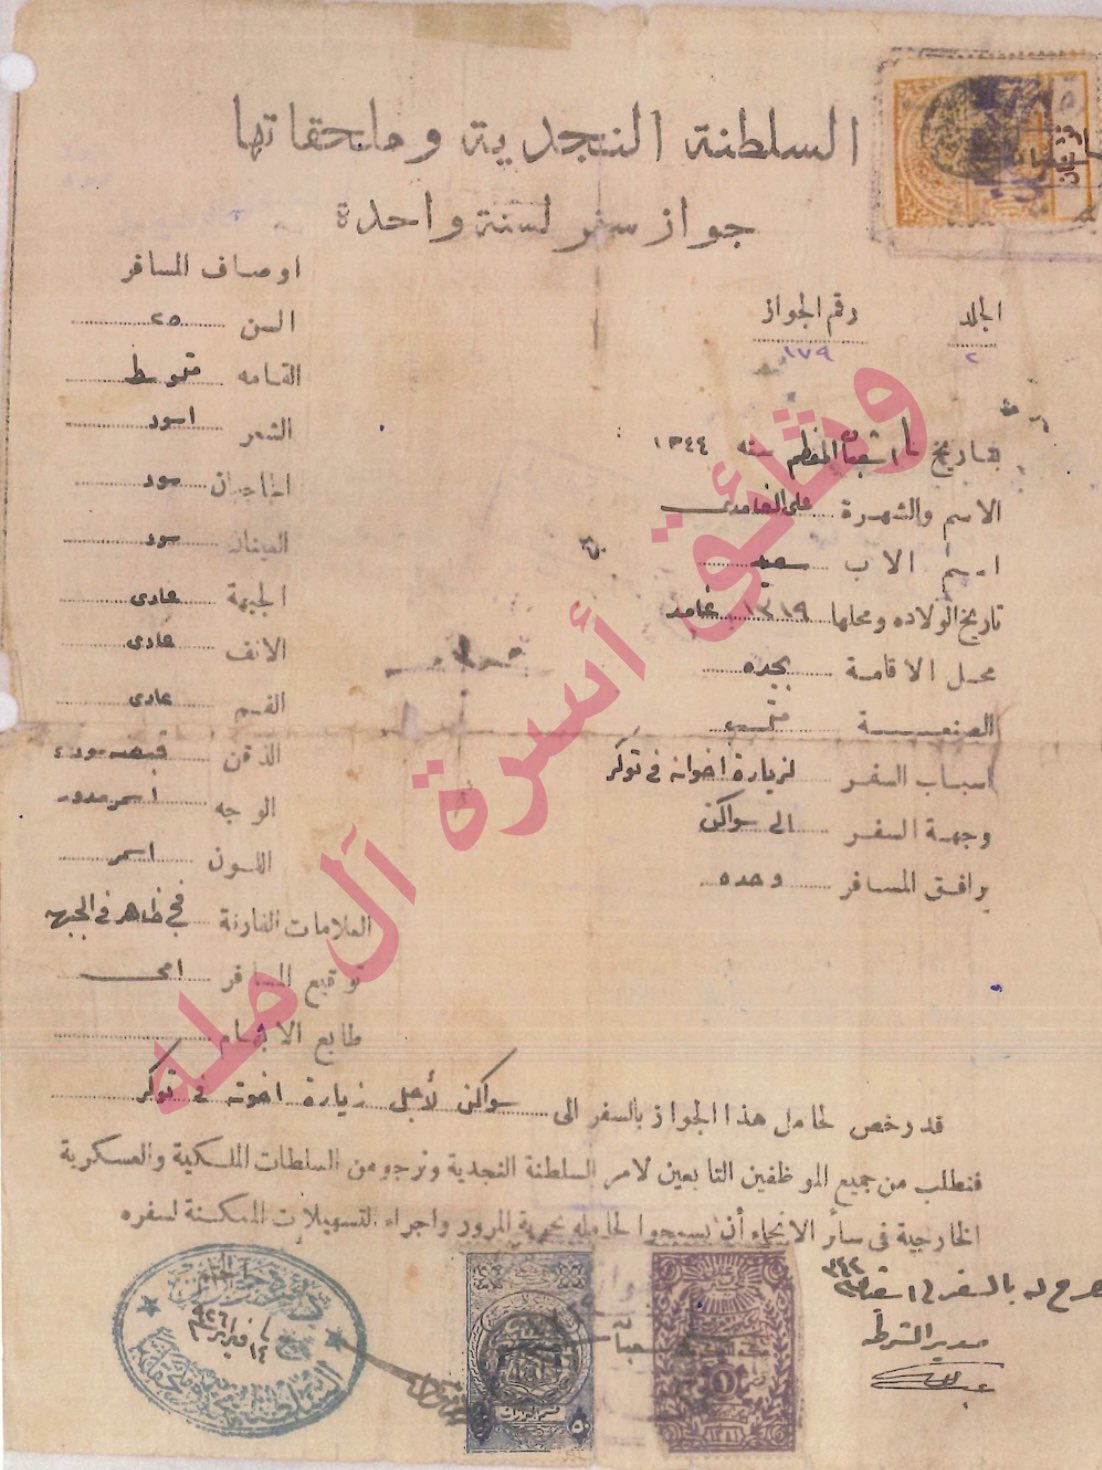 السلطنة النجدية وملحقاتها
جواز سفر لسنة واحدة
الجلد ٢
رقم الجواز ١٧٩
بتاريخ ١ شعبان المعظم سنه ١٣٤٤
الاسم والشهرة علي الغامدي
اسم الاب سعيد
تاريخ الولاده ومحلها ١٣١٩ غامد
محل الاقامة بجده
الصنعة متسبب
اسباب السفر لزيارة اخوانه في توكر
وجهة السفر الى سواكن
يرافق المسافر وحده
اوصاف المسافر
السن ٢٥
القامه متوسط
الشعر اسود
الحاجبان سود
العينان سود
الجبهة عادى
الانف عادى
الفم عادى
الذقن سوداء
الوجه اسمر مدور
اللون اسمر
العلامات الفارقة ظاهر في الجبهه
توقيع المسافر امي
طابع الابهام
قد رخص لحامل هذا الجواز بالسفر الى سواكن لأجل زيارة اخوته في توكر
فنطلب من جميع الموظفين التابعين لامر السلطنة النجدية ونرجو من السلطات الملكية والعسكرية
الخارجية في سائر الانحاء أن يسمحوا لحامله بحرية المرور واجراء التسهيلات الممكنة لسفره
مدير الشرطه
وثائق أسرة آل طه